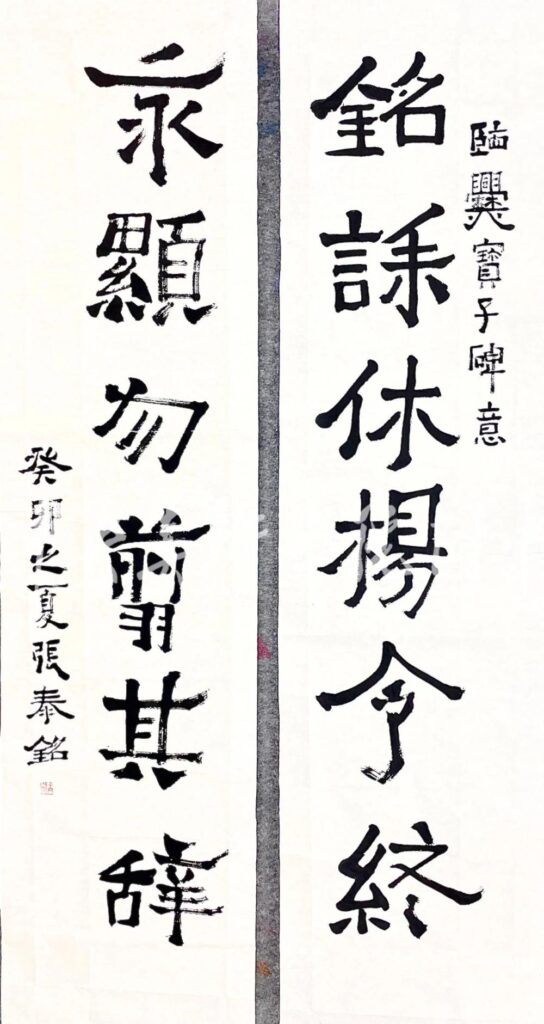 臨爨寶子碑意
銘誄休揚令終
永顯勿翦其辭
癸卯之夏張泰銘